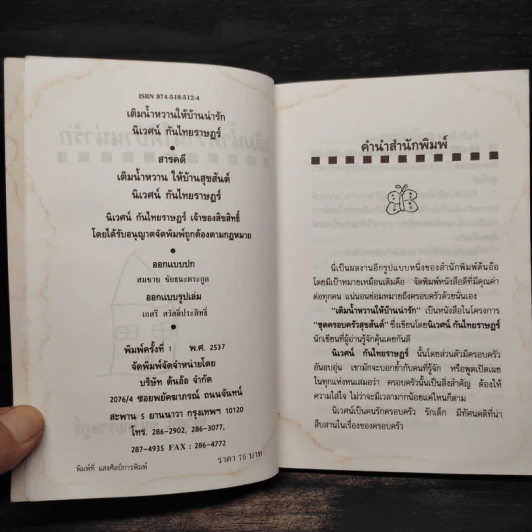 ISBN 974-518-512-4
เติมน้ำหวานให้บ้านน่ารัก
นิเวศน์ กันไทยราษฎร์
สารคดี
เติมน้ำหวาน ให้บ้านสุขสันต์
นิเวศน์ กันไทยราษฎร์
นิเวศน์ กันไทยราษฎร์ เจ้าของลิขสิทธิ์
โดยได้รับอนุญาตจัดพิมพ์ถูกต้องตามกฎหมาย
ออกแบบปก
สมชาย ชัยธนะตระกูล
ออกแบบรูปเล่ม
เกสรี สวัสดิ์ประสิทธิ์
พิมพ์ครั้งที่ 1 พ.ศ. 2537
จัดพิมพ์จัดจำหน่ายโดย
บริษัท ต้นอ้อ จำกัด
2076/4 ซอยพยัคฆาภรณ์ ถนนจันทน์
สะพาน 5 ยานนาวา กรุงเทพฯ 10120
โทร. 286-2902, 286-3077,
287-4935 FAX : 286-4772
ราคา 75 บาท
พิมพ์ที่ แสงศิลป์การพิมพ์
คำนำสำนักพิมพ์
นี่เป็นผลงานอีกรูปแบบหนึ่งของสำนักพิมพ์ต้นอ้อ
โดยมีเป้าหมายเหมือนเดิมคือ จัดพิมพ์หนังสือดีที่มีคุณค่า
ต่อทุกคน แน่นอนย่อมหมายถึงครอบครัวด้วยนั่นเอง
"เติมน้ำหวานให้บ้านน่ารัก" เป็นหนังสือในโครงการ
"ชุดครอบครัวสุขสันต์" ซึ่งเขียนโดยนิเวศน์ กันไทยราษฎร์
นักเขียนที่ผู้อ่านรู้จักคุ้นเคยกันดี
นิเวศน์ กันไทยราษฎร์ นั้นโดยส่วนตัวมีครอบครัว
อันอบอุ่น เขามักจะบอกย้ำกับคนที่รู้จัก หรือพูดเปิดเผย
ในทุกแห่งหนเสมอว่า ครอบครัวนั้นเป็นสิ่งสำคัญ ต้องให้
ความใส่ใจ ไม่ว่าจะมีเวลามากน้อยแค่ไหนก็ตาม
นิเวศน์เป็นคนรักครอบครัว รักเด็ก มีทัศนคติที่น่า
สืบสานในเรื่องของครอบครัว